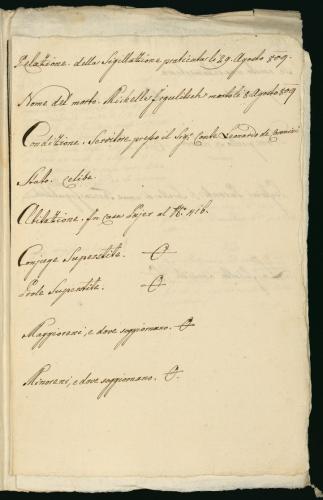 Relazione della Sigillazione praticata li 29. Agosto 809.
Nome del morto. Michelle morto li 8. Agosto 809
Condizione. Servitore presso il Sigr. Conte Leonardo de
Stato. celibe.
Abitazione. In casa Pajer al No. 416.
Conjuge Superstite. O
Prole Superstite. O
Maggioreni, e dove soggiornano. O
Minoreni, e dove soggiornano. O.